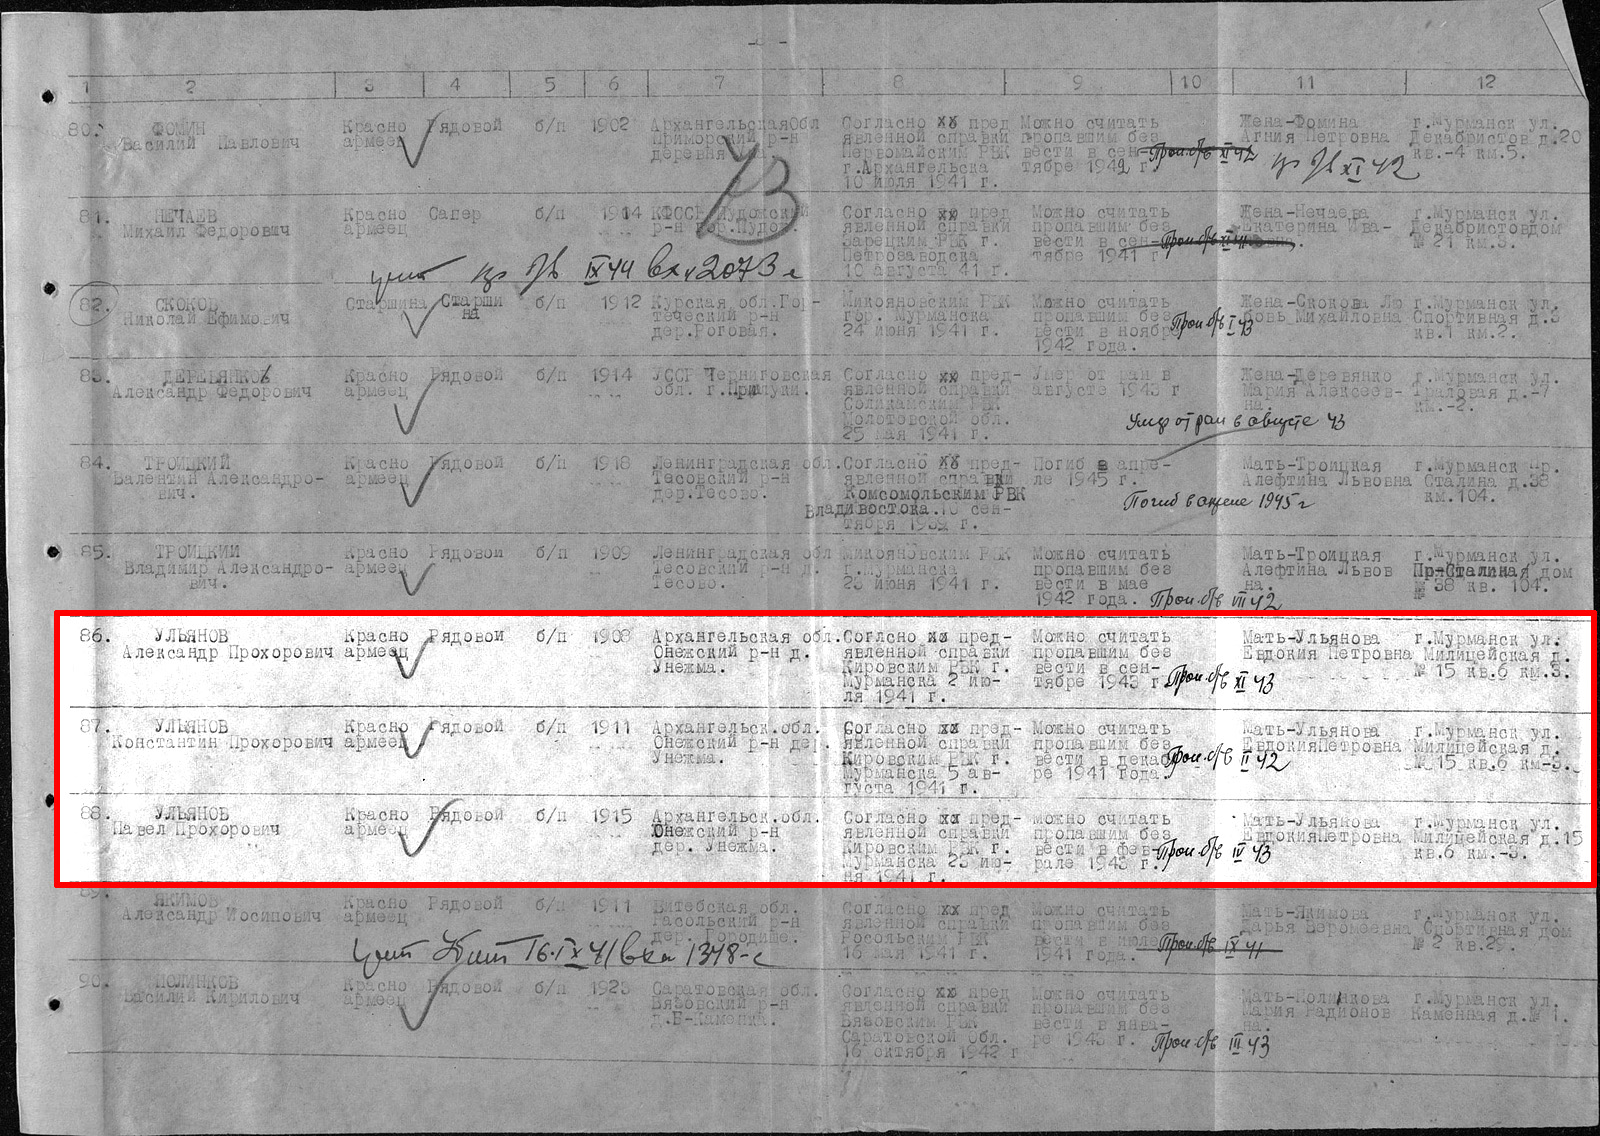 1 2 3 4 5 6 7 8 9 10 11 12
80. ФОМИН Василий Павлович Красно армеец Рядовой б/п 1902 Архангельская Обл Приморский р-н деревня Согласно хх пред явленной справки Первомайским РВК г.Архангельска 10 июля 1941 г. Можно считать пропавшим без вести в сен- тябре 1942 г. Проп.б/в XI 42 Жена-Фомина Агния Петровна г.Мурманск ул. Декабристов д.20 кв.-4 км.5.
пр б/в XI 42
73
81. НЕЧАЕВ Михаил Федорович Красно армеец Сапер б/п 1914 КФССР Пудожский р-н гор.Пудож. Согласно хх пред явленной справки Зарецким РВК г. Петрозаводска 10 августа 41 г. Можно считать пропавшим без вести в сен- тябре 1941 г. Жена-Нечаева Екатерина Ива- г.Мурманск ул. Декабристовдом № 21 км.3.
IX 44 вх 2073 с
82. СКОКОВ Николай Ефимович Старшина Старши на б/п 1912 Курская обл.Гор- теческий р-н дер.Роговая. Микояновским РВК гор. Мурманска 24 июня 1941 г. Можно считать пропавшим без вести в ноябр 1942 года. Проп б/в I 43 Жена-Скокова Лю бовь Михайловна г.Мурманск ул. Спортивная д.3 кв.1 км.2.
83. ДЕРЕВЯНКО Александр Федорович Красно армеец Рядовой б/п 1914 УССР Черниговская обл. г.Прилуки. Согласно хх пред- явленной справки Соликамским РВК Молотовской обл. 25 мая 1941 г. Умер от ран в августе 1943 г Жена-Деревянко Мария Алексеев- на. г.Мурманск ул. Траловая д.-7 км.-2.
Умер от ран в августе 43
84. ТРОИЦКИЙ Валентин Александро- вич. Красно армеец Рядовой б/п 1918 Ленинградская обл. Тесовский р-н дер.Тесово. Согласно хх пред- явленной справки Комсомольским РВК Владивостока.10 сен- тября 1939 г. Погиб в апре- ле 1945 г. Мать-Троицкая Алефтина Львовна г.Мурманск пр. Сталина д.38 км.104.
Погиб в апреле 1945 г
85. ТРОИЦКИЙ Владимир Александро- вич. Красно армеец Рядовой б/п 1909 Ленинградская обл Тесовский р-н д. Тесово. Микояновским РВК г.Мурманска 23 июня 1941 г. Можно считать пропавшим без вести в мае 1942 года. Проп.б/в VII 42 Мать-Троицкая Алефтина Львов на. г.Мурманск ул. Пр-Сталина дом № 38 кв. 104.
86. УЛЬЯНОВ Александр Прохорович Красно армеец Рядовой б/п 1908 Архангельская обл. Онежский р-н д. Унежма. Соглсно хх пред- явленной справки Кировским РВК г. Мурманска 2 ию- ля 1941 г. Можно считать пропавшим без вести в сен- тябре 1943 г. Проп.б/в XI 43 Мать-Ульянова Евдокия Петровна г.Мурманск ул. Милицейская д. № 15 кв.6 км.3.
87. УЛЬЯНОВ Константин Прохорович Красно армеец Рядовой б/п 1911 Архангельск.обл. Онежский р-н дер. Унежма. Согласно хх пред- явленной справки Кировским РВК г. Мурманска 5 ав- густа 1941 г. Можно считать пропавшим без вести в декаб ре 1941 года. Проп.б/в II 42 Мать-Ульянова ЕвдокияПетровна г.Мурманск ул. Милицейская д. № 15 кв.6 км-3.
88. УЛЬЯНОВ Павел Прохорович Красно армеец Рядовой б/п 1915 Архангельск.обл. Онежский р-н дер. Унежма. Согласно хх пред- явленной справки Кировским РВК г. Мурманска 23 ию- ня 1941 г. Можно считать пропавшим без вести в фев- рале 1943 г. Проп б/в IV 43 Мать-Ульянова ЕвдокияПетровна г.Мурманск ул. Милицейская д.15 кв.6 км.-3.
89. ЯКИМОВ Александр Иосипович Красно армеец Рядовой б/п 1911 Витебская обл. р-н дер. Городище. Согласно хх пред явленной справки РВК 16 мая 1941 г. Можно считать пропавшим без вести в июле 1941 года. Проп.б/в IX 41 Мать-Якимова Дарья г.Мурманск ул. Спортивная дом № 2 кв.29.
16.IX 41 1348-с
90. ПОЛИНКОВ Василий Кирилович Красно армеец Рядовой б/п 1923 Саратовская обл. Вязовский р-н д.Б-Каменка. Согласно хх пред явленной справки Вязовским РВК Саратовской обл. 16 октября 1942 г Можно считать пропавшим без вести в янва- ре 1943 г. Проп б/в III 43 Мать-Полинкова Мария Радионов на. г.Мурманск ул. Каменная д.№ 1.